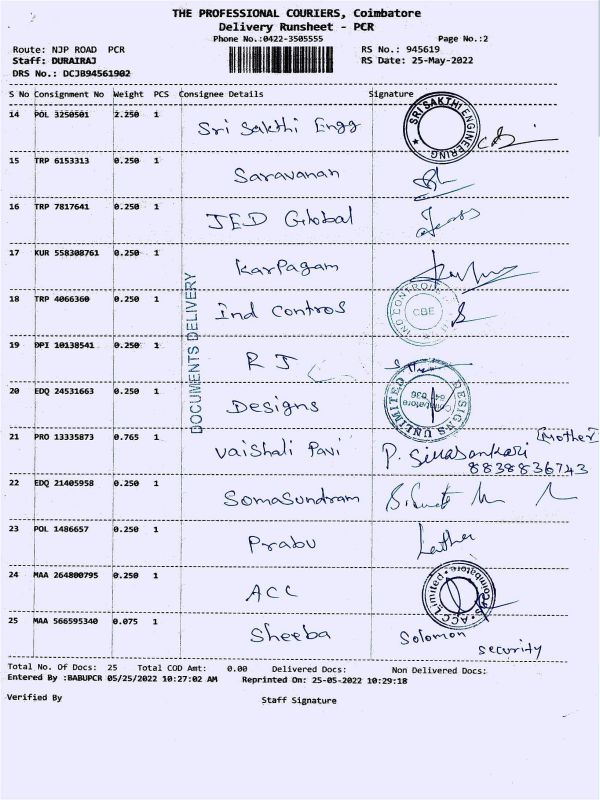 THE PROFESSIONAL COURIERS, Coimbatore
Delivery Runsheet - PCR
Phone No.:0422-3505555
Page No.:2
Route: NJP ROAD PCR
RS No.: 945619
Staff: DURAIRAJ
RS Date: 25-May-2022
DRS No.: DCJB94561902
S No Consignment No Weight PCS Consignee Details Signature
14 POL 3250501 2.250 1 Sri Sakthi Engg
SRI SAKTHI ENGINEERING
15 TRP 6153313 0.250 1 Saravanan
16 TRP 7817641 0.250 1 JED Global
17 KUR 558308761 0.250 1 Karpagam
DOCUMENTS DELIVERY
18 TRP 4066360 0.250 1 Ind Contros
CBE
19 DPI 10138541 0.250 1 R J
20 EDQ 24531663 0.250 1 Designs
DESIGNS UNLIMITED
Coimbatore
21 PRO 13335873 0.765 1 Vaishali Pavi P. Sivasankari [Mother]
8838836743
22 EDQ 21405958 0.250 1 SomaSundram
23 POL 1486657 0.250 1 Prabu
24 MAA 264800795 0.250 1 ACC
ACC Limited Coimbatore
25 MAA 566595340 0.075 1 Sheeba Solomon
security
Total No. Of Docs: 25 Total COD Amt: 0.00 Delivered Docs: Non Delivered Docs:
Entered By :BABUPCR 05/25/2022 10:27:02 AM Reprinted On: 25-05-2022 10:29:18
Verified By Staff Signature